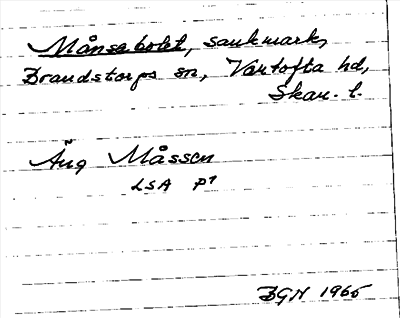 Månsabolet, sankmark,
Brandstorps sn, Vartofta hd,
Skar. l.
Äng Måssen
LSA P7
BGN 1965